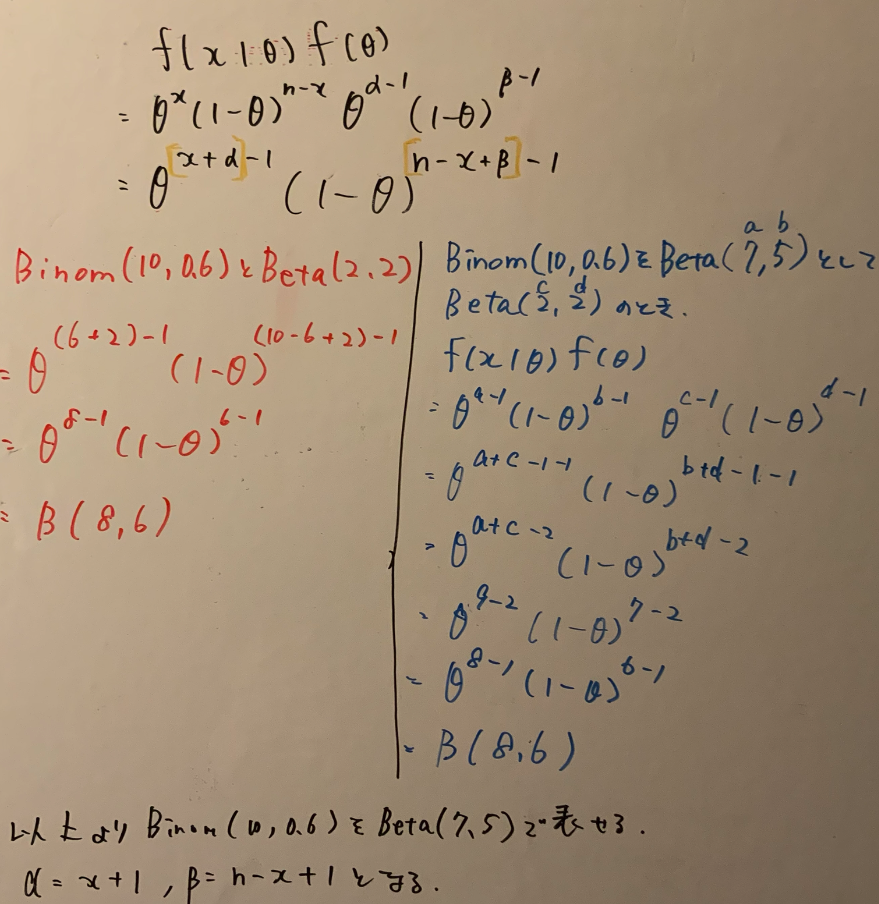 f(x|θ)f(θ)
= θ^x (1-θ)^{n-x} θ^{α-1} (1-θ)^{β-1}
= θ^{[x+α]-1} (1-θ)^{[n-x+β]-1}
Binom(10, 0.6)とBeta(2.2)
= θ^{(6+2)-1} (1-θ)^{(10-6+2)-1}
= θ^{8-1} (1-θ)^{6-1}
= B(8,6)
a b
Binom(10,0.6)をBeta(7,5)として
c d
Beta(2,2)のとき.
f(x|θ)f(θ)
= θ^{a-1} (1-θ)^{b-1} θ^{c-1} (1-θ)^{d-1}
= θ^{a+c-1-1} (1-θ)^{b+d-1-1}
= θ^{a+c-2} (1-θ)^{b+d-2}
= θ^{9-2} (1-θ)^{7-2}
= θ^{8-1} (1-θ)^{6-1}
= B(8,6)
以上より Binom(10,0.6)をBeta(7,5)で表せる.
α=x+1, β=n-x+1となる.